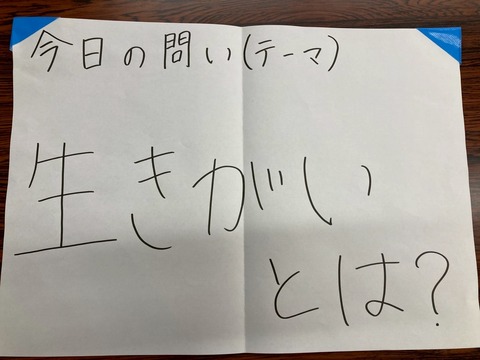 今日の問い(テーマ)
生きがい
とは?